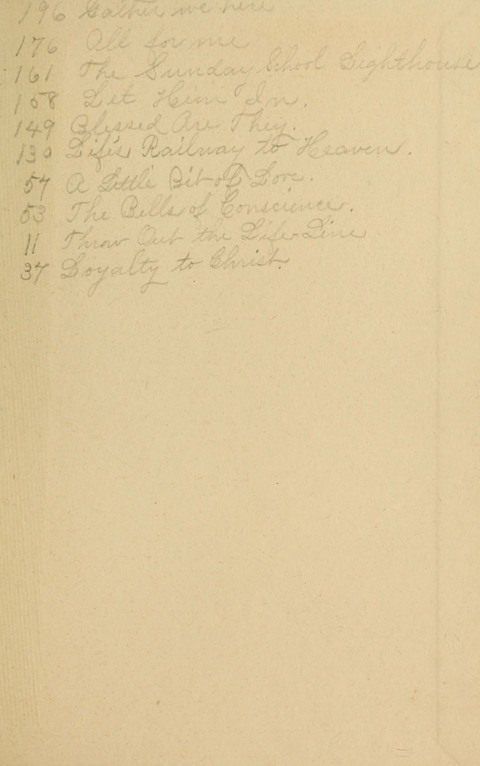 196 Gather we here
176 All for me
161 The Sunday School Lighthouse
158 Let Him In.
149 Blessed Are They.
130 Life's Railway to Heaven.
54 A Little Bit of Love.
53 The Bells of Conscience.
11 Throw Out the Life-Line
37 Loyalty to Christ.